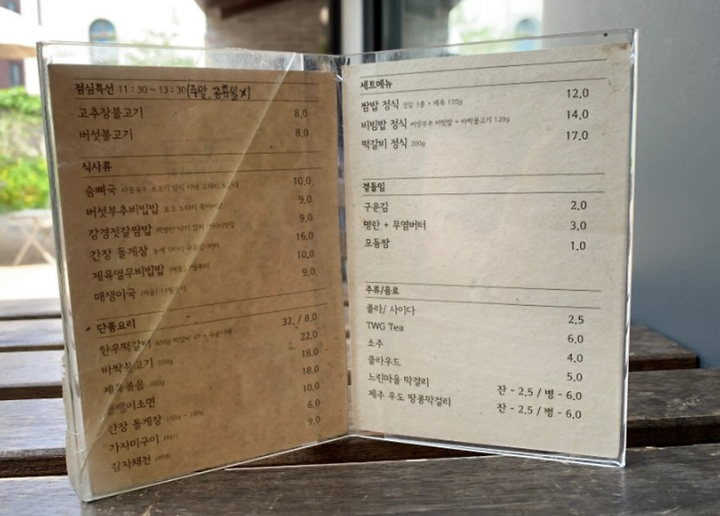 점심특선 11:30~13:30 (주말, 공휴일 X)
고추장불고기 8.0
버섯불고기 8.0
식사류
숨뼈국 10.0
버섯부추비빔밥 9.0
강경젓갈쌈밥 9.0
간장 돌게장 16.0
제육열무비빔밥 10.0
매생이국 9.0
단품요리
한우떡갈비 32. / 8.0
바싹불고기 22.0
제육볶음 300g 18.0
소면 18.0
간장 돌게장 150g ~ 180g 10.0
가자미구이 6.0
감자채전 9.0
세트메뉴
쌈밥 정식 12.0
비빔밥 정식 버섯부추 비빔밥 + 바싹불고기 120g 14.0
떡갈비 정식 200g 17.0
곁들임
구운김 2.0
명란 + 무염버터 3.0
모둠쌈 1.0
주류/음료
콜라/ 사이다 2.5
TWG Tea 6.0
소주 4.0
클라우드 5.0
느린마을 막걸리 잔 - 2.5 / 병 - 6.0
제주 우도 땅콩막걸리 잔 - 2.5 / 병 - 6.0